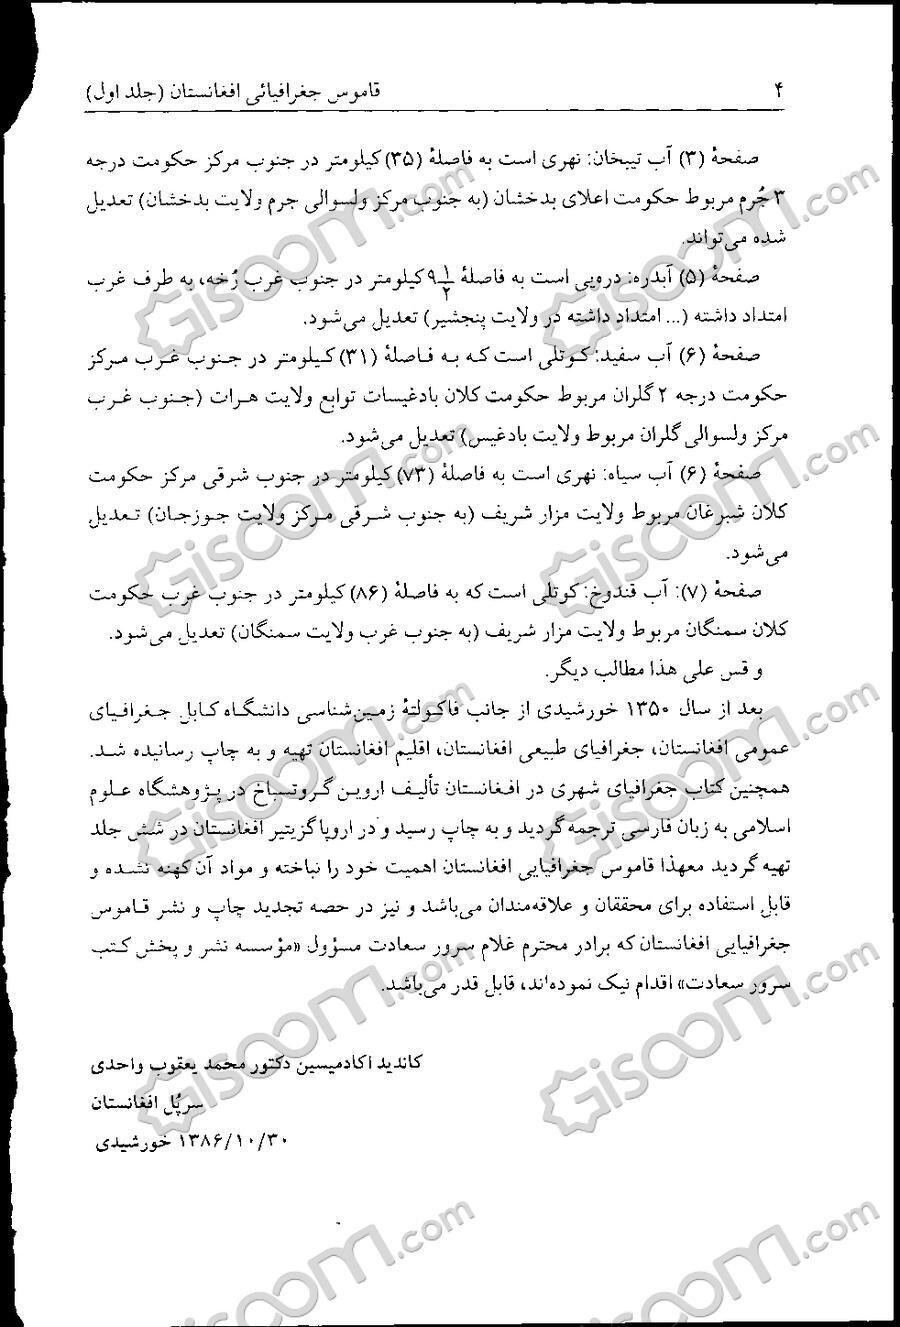 ۴
قاموس جغرافیائی افغانستان (جلد اول)
صفحهٔ (۳) آب تیبخان: نهری است به فاصلهٔ (۳۵) کیلومتر در جنوب مرکز حکومت درجه
۳ جُرم مربوط حکومت اعلای بدخشان (به جنوب مرکز ولسوالی جرم ولایت بدخشان) تعدیل
شده می‌تواند.
صفحهٔ (۵) آبدره: درویی است به فاصلهٔ ۹ ۱/۲ کیلومتر در جنوب غرب رُخه، به طرف غرب
امتداد داشته (... امتداد داشته در ولایت پنجشیر) تعدیل می‌شود.
صفحهٔ (۶) آب سفید: کوتلی است که به فاصلهٔ (۳۱) کیلومتر در جنوب غرب مرکز
حکومت درجه ۲ گلران مربوط حکومت کلان بادغیسات توابع ولایت هرات (جنوب غرب
مرکز ولسوالی گلران مربوط ولایت بادغیس) تعدیل می‌شود.
صفحهٔ (۶) آب سیاه: نهری است به فاصلهٔ (۷۳) کیلومتر در جنوب شرقی مرکز حکومت
کلان شبرغان مربوط ولایت مزار شریف (به جنوب شرقی مرکز ولایت جوزجان) تعدیل
می‌شود.
صفحهٔ (۷): آب قندوخ: کوتلی است که به فاصلهٔ (۸۶) کیلومتر در جنوب غرب حکومت
کلان سمنگان مربوط ولایت مزار شریف (به جنوب غرب ولایت سمنگان) تعدیل می‌شود.
و قس علی هذا مطالب دیگر.
بعد از سال ۱۳۵۰ خورشیدی از جانب فاکولتهٔ زمین‌شناسی دانشگاه کابل جغرافیای
عمومی افغانستان، جغرافیای طبیعی افغانستان، اقلیم افغانستان تهیه و به چاپ رسانیده شد.
همچنین کتاب جغرافیای شهری در افغانستان تألیف اروین گروتسباخ در پژوهشگاه علوم
اسلامی به زبان فارسی ترجمه گردید و به چاپ رسید و در اروپا گزیتیر افغانستان در شش جلد
تهیه گردید معهذا قاموس جغرافیایی افغانستان اهمیت خود را نباخته و مواد آن کهنه نشده و
قابل استفاده برای محققان و علاقه‌مندان می‌باشد و نیز در حصه تجدید چاپ و نشر قاموس
جغرافیایی افغانستان که برادر محترم غلام سرور سعادت مسؤول «مؤسسه نشر و پخش کتب
سرور سعادت» اقدام نیک نموده‌اند، قابل قدر می‌باشد.
کاندید اکادمیسین دکتور محمد یعقوب واحدی
سرپُل افغانستان
۱۳۸۶/۱۰/۳۰ خورشیدی
Gisoom.com
Gisoom.com
Gisoom.com
Gisoom.com
Gisoom.com
Gisoom.com
Gisoom.com
Gisoom.com
Gisoom.com
Gisoom.com